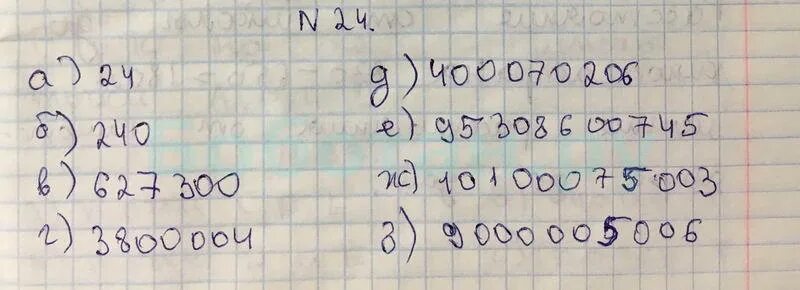 N 24.
а) 24
б) 240
в) 627 300
г) 3800004
д) 400070206
е) 95308600745
ж) 10100075003
з) 9000005006